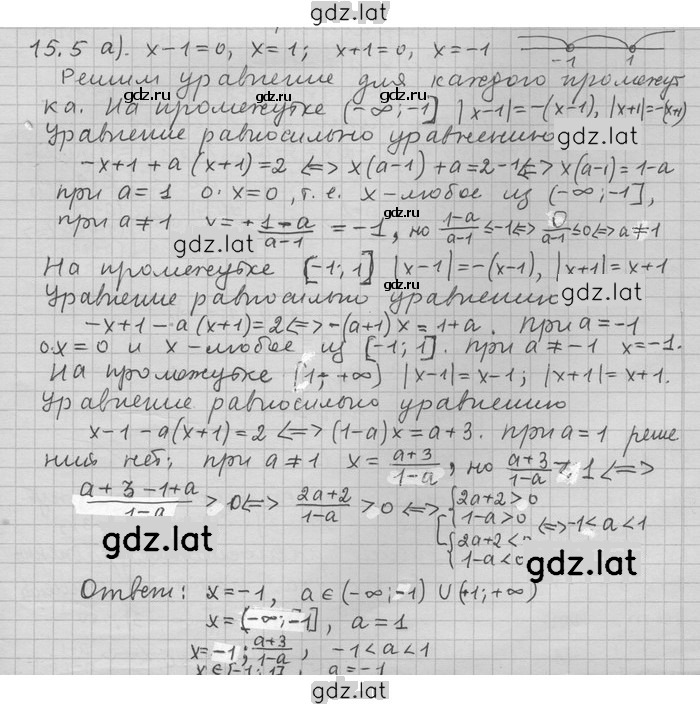 gdz.lat
15.5 а). x-1=0, x=1; x+1=0, x=-1
-1 1
Решим уравнение для каждого промежут
ка. На промежутке (-∞;-1] |x-1|=-(x-1), |x+1|=-(x+1)
gdz.lat gdz.lat
Уравнение равносильно уравнению
gdz.lat
-x+1+a(x+1)=2 <=> x(a-1)+a=2-1 <=> x(a-1)=1-a
при a=1 0·x=0, т.е. x-любое из (-∞;-1],
при a≠1 x=+(1-a)/(a-1)=-1, но (1-a)/(a-1)≤-1 <=> 0/(a-1)≤0 <=> a≠1
gdz.lat
На промежутке [-1;1] |x-1|=-(x-1), |x+1|=x+1
Уравнение равносильно уравнению
gdz.lat
-x+1-a(x+1)=2 <=> -(a+1)x=1+a. При a=-1
0·x=0 и x-любое из [-1;1]. при a≠-1 x=-1.
На промежутке (1;+∞) |x-1|=x-1; |x+1|=x+1.
Уравнение равносильно уравнению
x-1-a(x+1)=2 <=> (1-a)x=a+3. при a=1 реше
ний нет; при a≠1 x=(a+3)/(1-a), но (a+3)/(1-a)>1 <=>
(a+3-1+a)/(1-a)>0 <=> (2a+2)/(1-a)>0 <=> [{2a+2>0
1-a>0
{2a+2<
1-a<0 <=> -1<a<1
gdz.lat gdz.lat
Ответ: x=-1, a∈(-∞;-1)∪(+1;+∞)
x=(-∞;-1], a=1
x=-1; (a+3)/(1-a), -1<a<1
x∈[-1;1], a=-1
gdz.lat